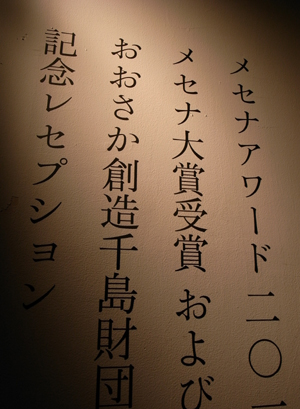 メセナアワード 二〇一
メセナ大賞受賞 および
おおさか創造千島財団
記念レセプション